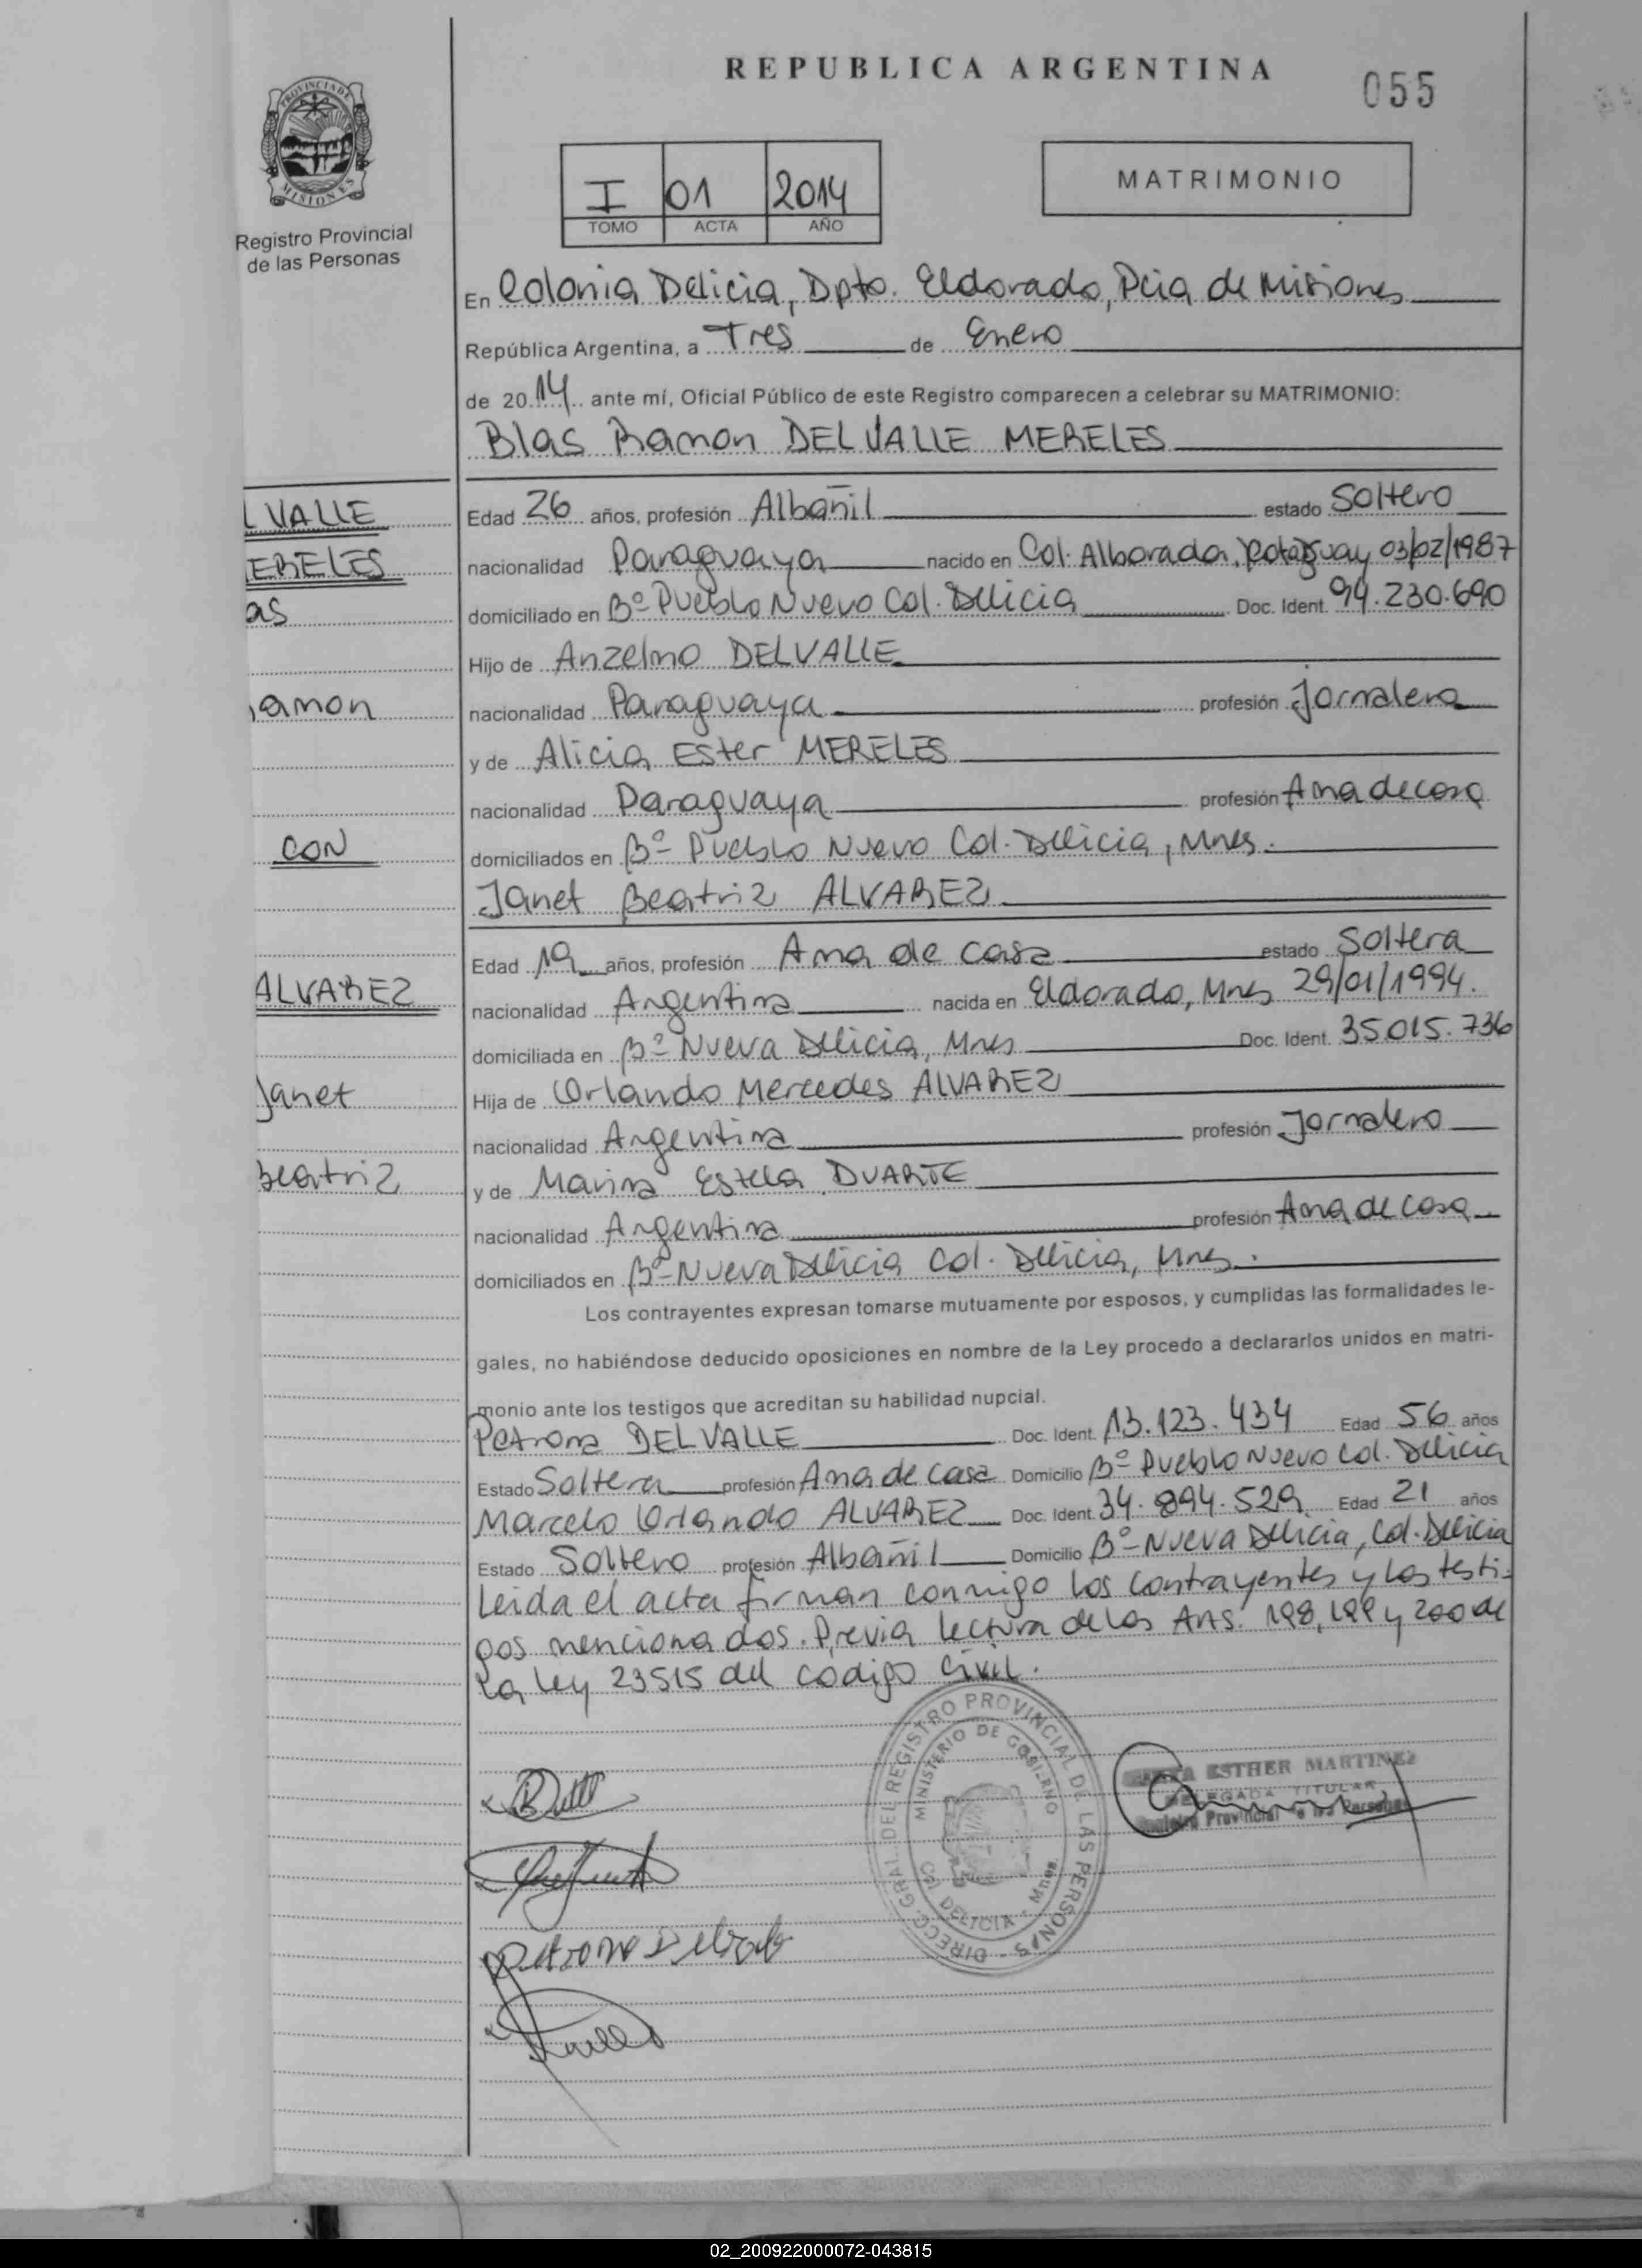 REPUBLICA ARGENTINA
055
PROVINCIA DE
MISIONES
Registro Provincial
de las Personas
I 01 2014
TOMO ACTA AÑO
MATRIMONIO
En Colonia Delicia, Dpto. Eldorado, Pcia de Misiones
República Argentina, a Tres de Enero
de 2014 ante mí, Oficial Público de este Registro comparecen a celebrar su MATRIMONIO:
Blas Ramon DELVALLE MERELES
L VALLE
Edad 26 años, profesión Albañil estado Soltero
ERELES
nacionalidad Paraguaya nacido en Col. Alborada, 03/02/1987
as
domiciliado en Bº Pueblo Nuevo Col. Delicia Doc. Ident. 94.230.690
Hijo de Anzelmo DELVALLE
amon
nacionalidad Paraguaya profesión Jornalero
y de Alicia Ester MERELES
nacionalidad Paraguaya profesión Ama de casa
CON
domiciliados en Bº Pueblo Nuevo Col. Delicia, Mnes.
Janet Beatriz ALVAREZ
Edad 19 años, profesión Ama de casa estado Soltera
ALVAREZ
nacionalidad Argentina nacida en Eldorado, Mnes 29/01/1994.
domiciliada en Bº Nueva Delicia, Mnes Doc. Ident. 35.015.736
Janet
Hija de Orlando Mercedes ALVAREZ
nacionalidad Argentina profesión Jornalero
Beatriz
y de Marina Estela DUARTE
nacionalidad Argentina profesión Ama de casa
domiciliados en Bº Nueva Delicia Col. Delicia, Mnes.
Los contrayentes expresan tomarse mutuamente por esposos, y cumplidas las formalidades le-
gales, no habiéndose deducido oposiciones en nombre de la Ley procedo a declararlos unidos en matri-
monio ante los testigos que acreditan su habilidad nupcial.
Petrona DELVALLE Doc. Ident. 13.123.434 Edad 56 años
Estado Soltera profesión Ama de casa Domicilio Bº Pueblo Nuevo Col. Delicia
Marcelo Orlando ALVAREZ Doc. Ident. 34.894.529 Edad 21 años
Estado Soltero profesión Albañil Domicilio Bº Nueva Delicia, Col. Delicia
Leida el acta firman conmigo los contrayentes y los testi-
gos mencionados. Previa lectura de los Arts. 198, 199 y 200 de
la ley 23515 del codigo civil.
DIRECC. GRAL. DEL REGISTRO PROVINCIAL DE LAS PERSONAS
MINISTERIO DE GOBIERNO
COL. DELICIA - Mnes.
ESTHER MARTINEZ
DELEGADA TITULAR
Registro Provincial de las Personas
02_200922000072-043815